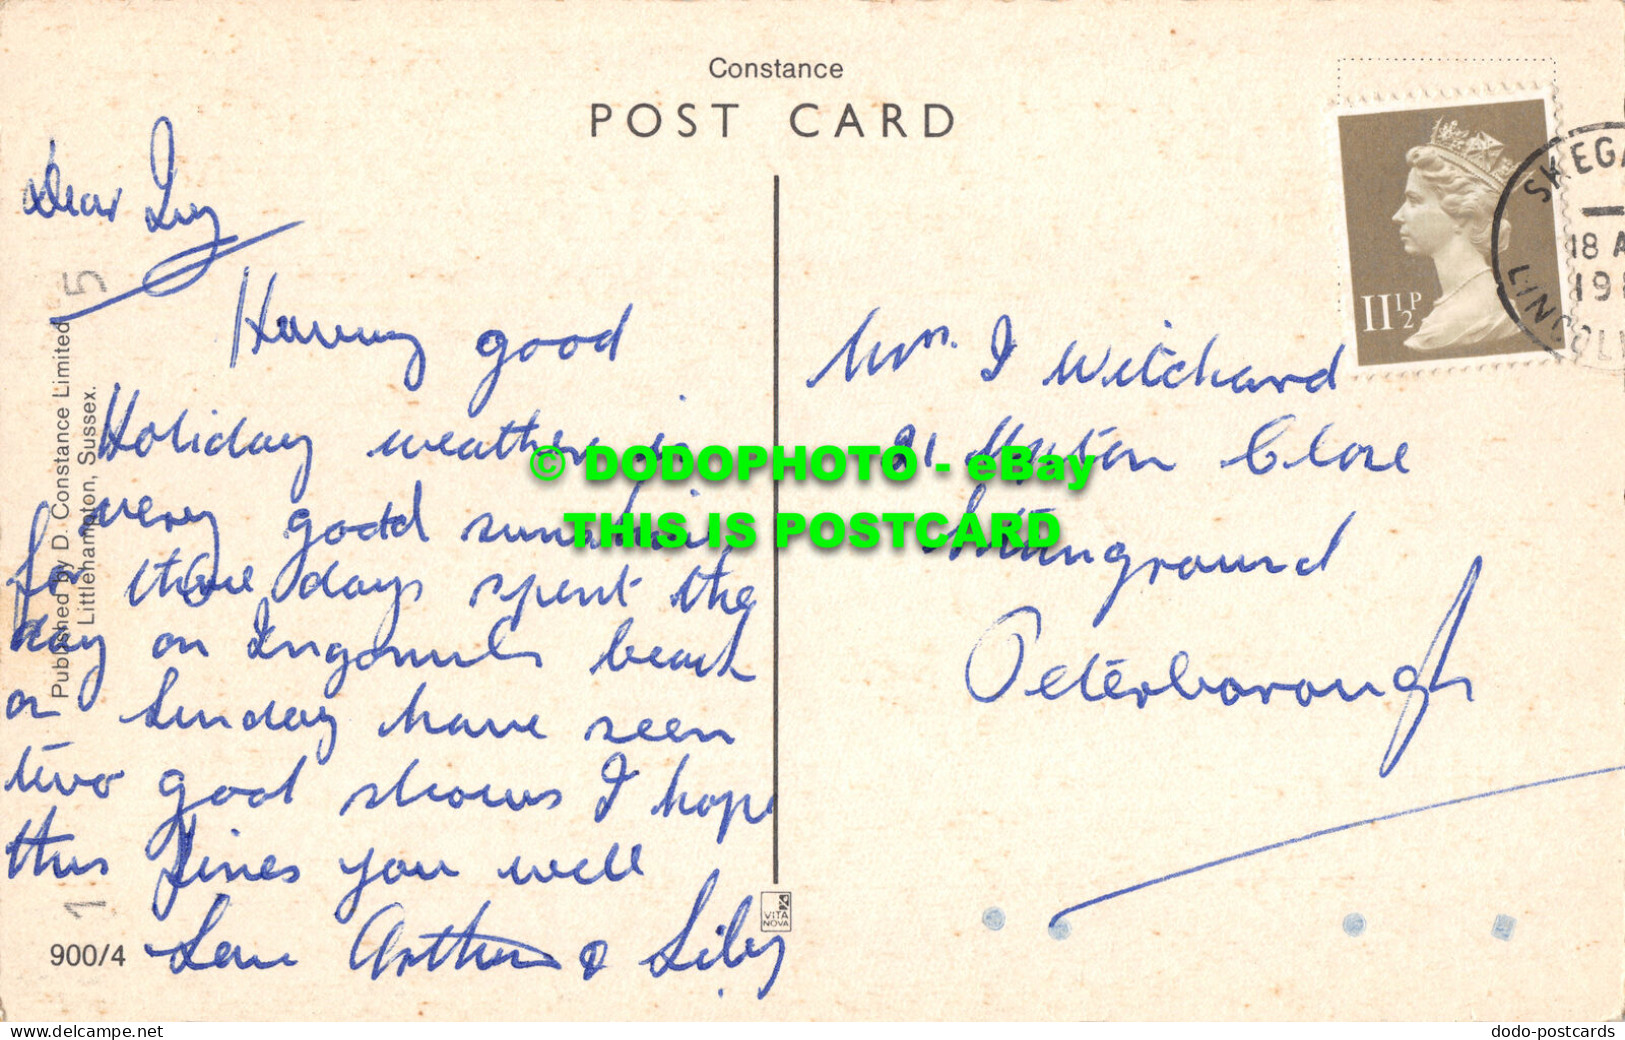 Constance
POST CARD
Dear Ivy
Having good
Holiday weather is
very good sunshine
for three days spent the
day on Ingomells beach
on Sunday have seen
two good shows I hope
this fines you well
Love Arthur & Lily
Mrs. I Witchard
21 Close
Peterborough
11½P
SKEGA
18 A
191
LINCOLN
Published by D. Constance Limited
Littlehampton, Sussex.
5
1
900/4
VITA
NOVA
© DODOPHOTO - eBay
THIS IS POSTCARD
www.delcampe.net
dodo-postcards